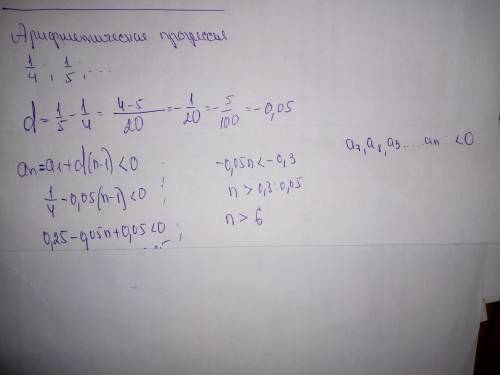 Арифметическая прогрессия
1/4 ; 1/5 ; ...
d = 1/5 - 1/4 = (4-5)/20 = -1/20 = -5/100 = -0,05
an = a1 + d(n-1) < 0 ;
1/4 - 0,05(n-1) < 0 ;
0,25 - 0,05n + 0,05 < 0 ;
-0,05n < -0,3
n > 0,3 : 0,05
n > 6
a7, a8, a9 .... an < 0